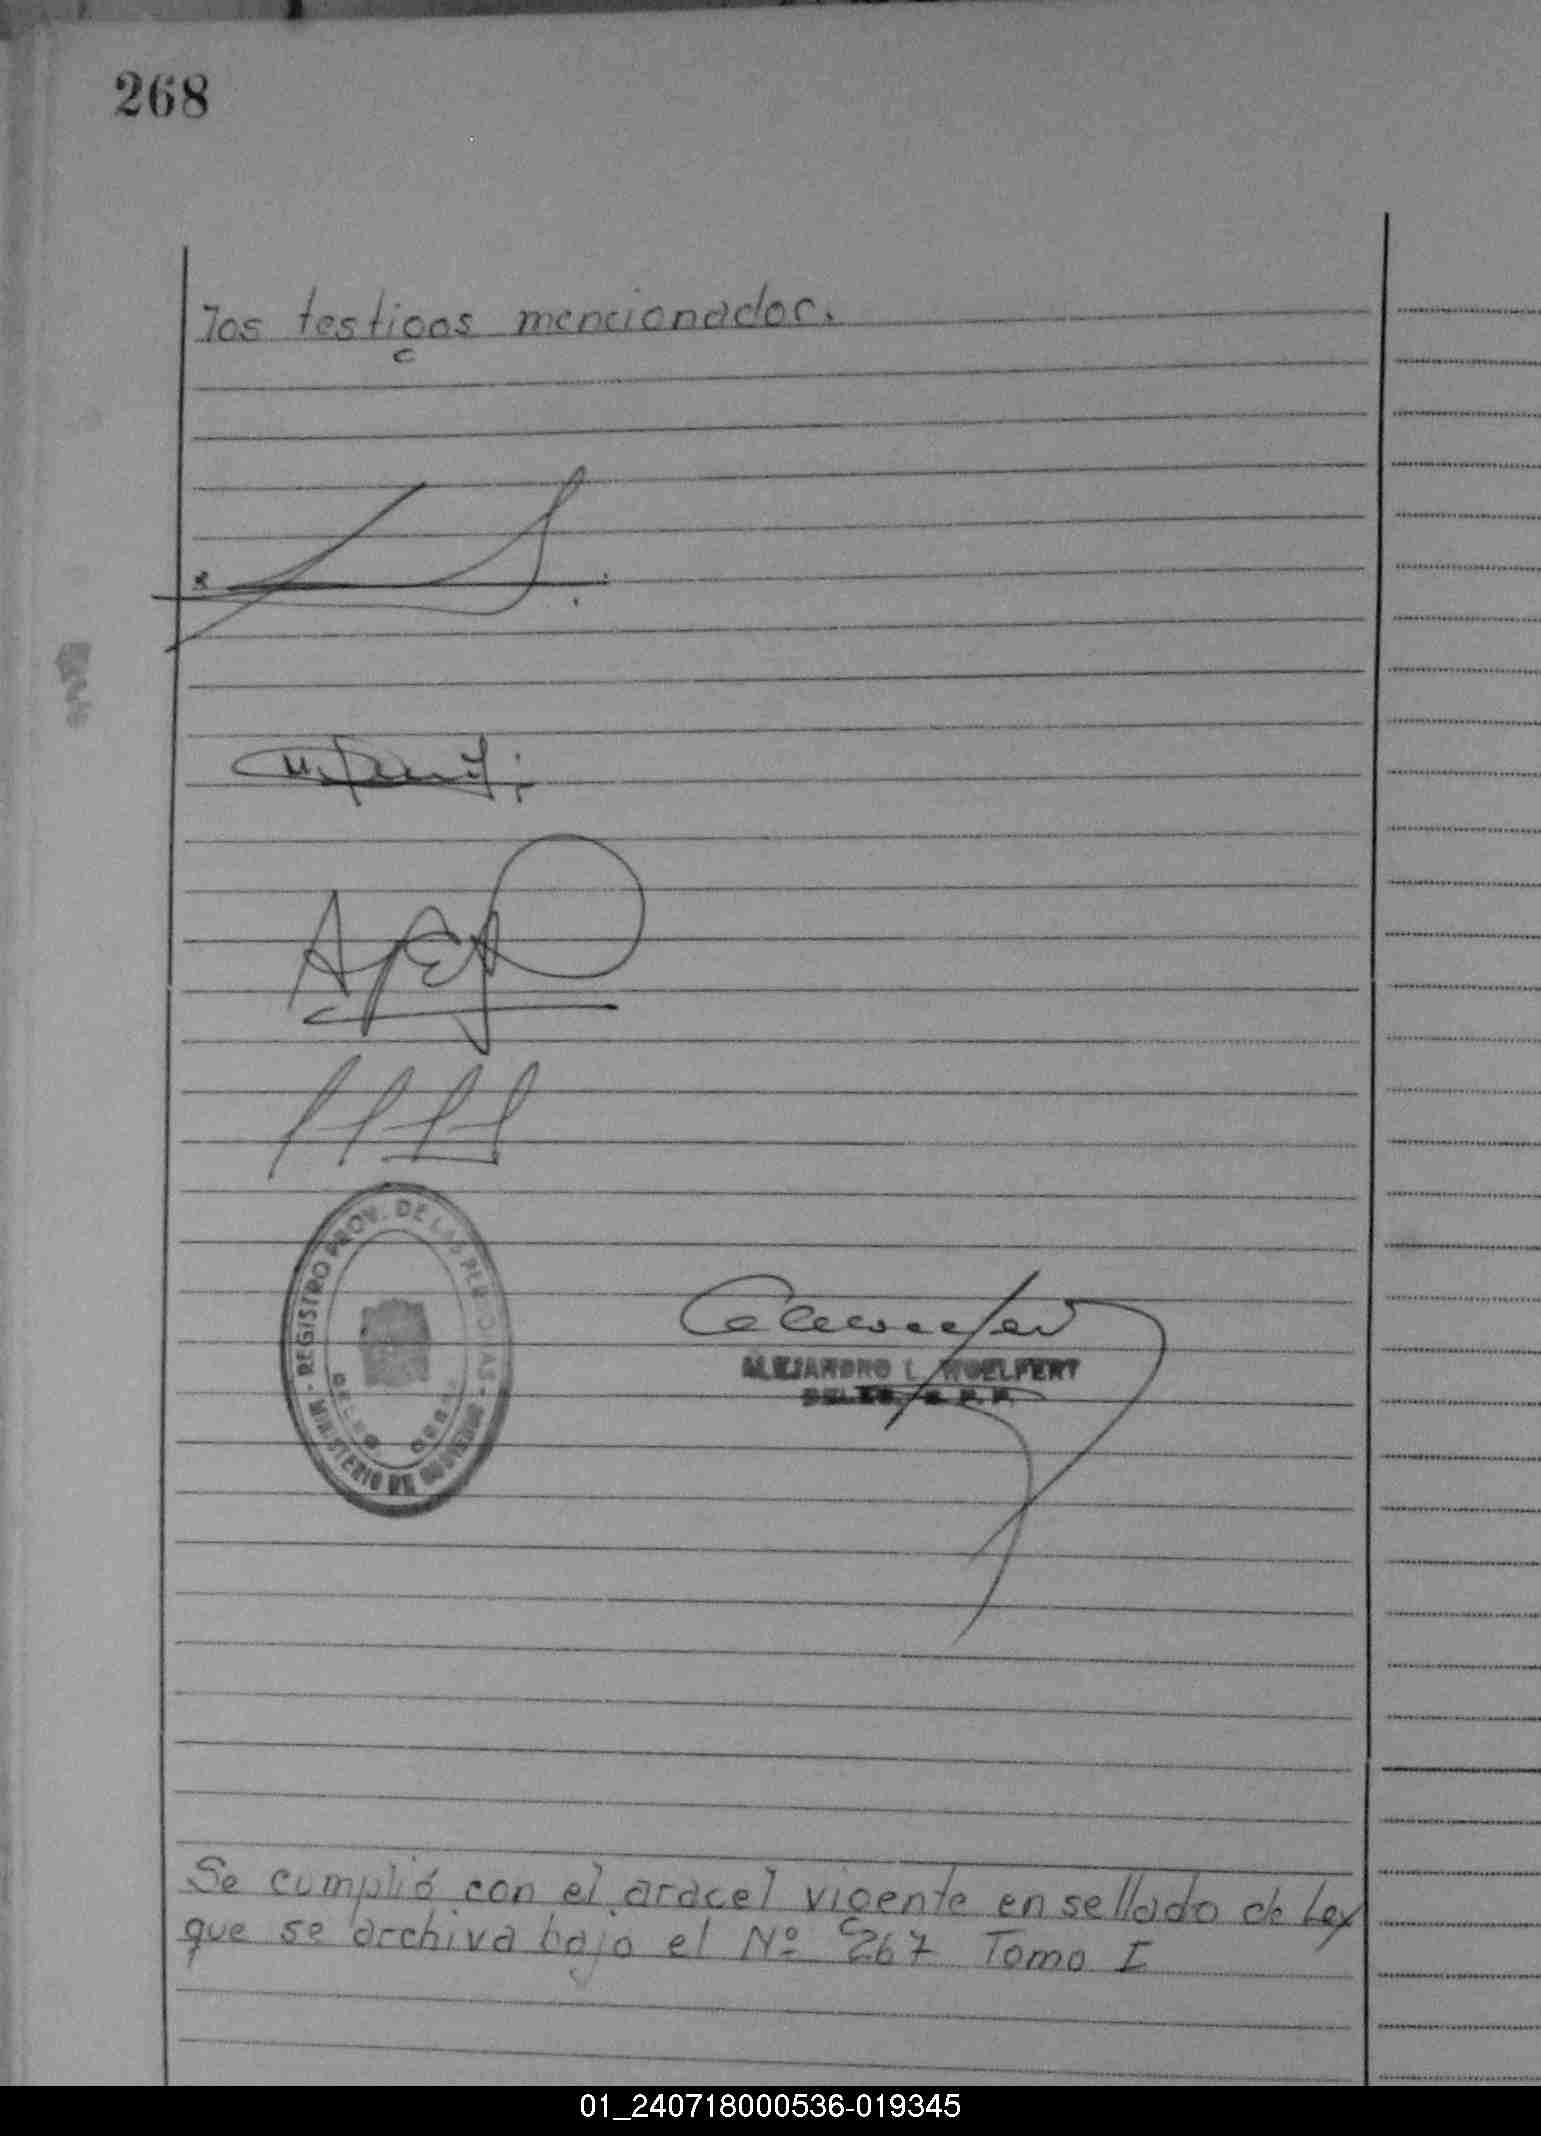 268
los testigos mencionados.
REGISTRO PROV. DE LAS PERSONAS
MINISTERIO DE GOBIERNO
ALEJANDRO L. WOELFERT
Se cumplió con el aracel vigente en sellado de Ley
que se archiva bajo el Nº 267 Tomo I
01_240718000536-019345